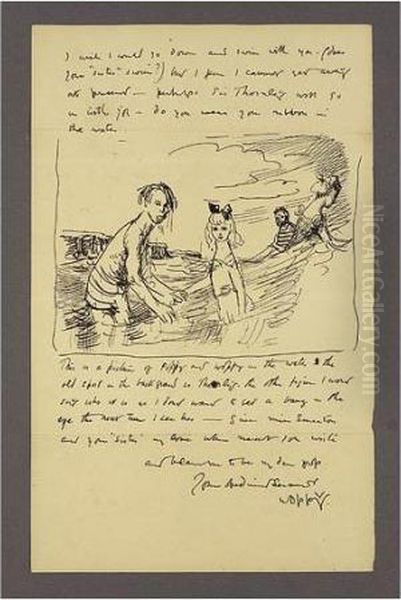 I wish I could go down and swim with you - (does
your "sister" swim?) but I fear I cannot get away
at present - perhaps Sir Thornley will go
in with you - do you wear your ribbon in
the water
This is a picture of Poppy and Woppy in the water & the
old spot in the background is Thornley. the other figure I won't
say who it is as I don't want to get a bang in the
eye the next time I see her - Give Miss
and your "Sister" my love when next you write
and believe me to be my dear
Your Obedient Servant
WOPPY.
NiceArtGallery.com